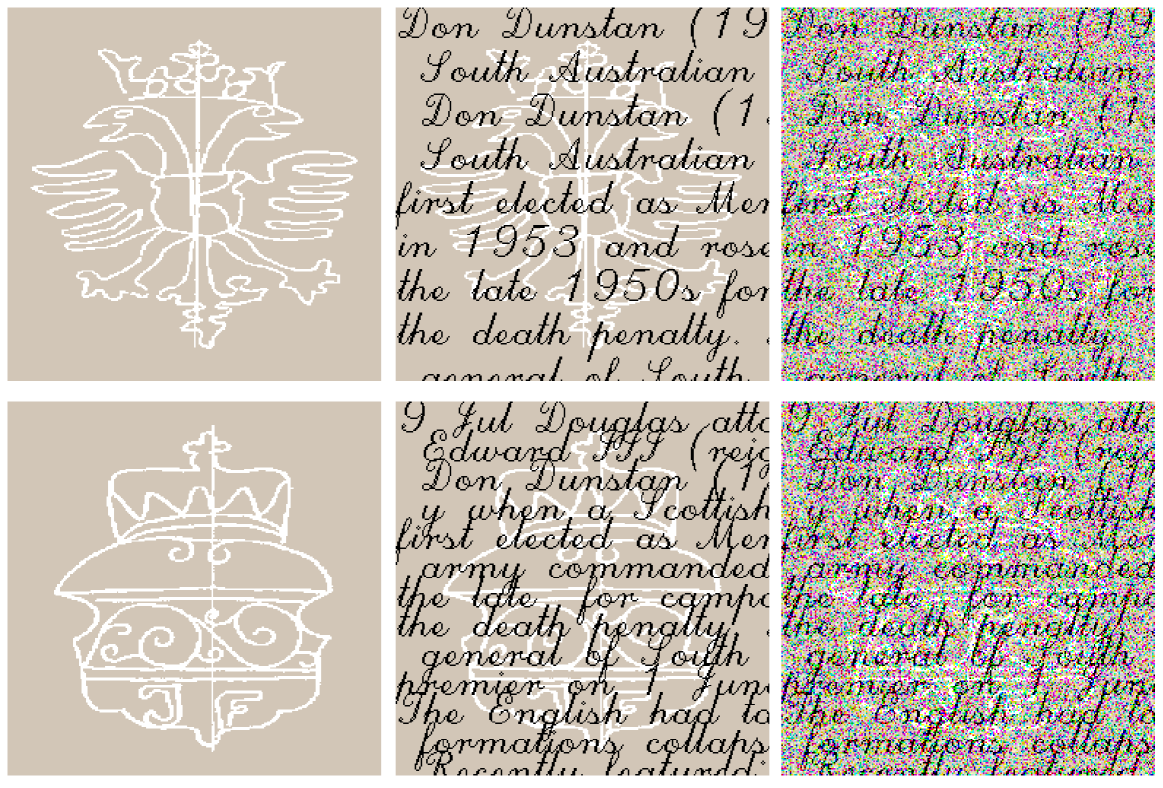 Don Dunstan (19
South Australian
Don Dunstan (1
South Australian
first elected as Mer
in 1953 and rose
the late 1950s for
the death penalty.
general of South
Don Dunstan (19
South Australian
Don Dunstan (1
South Australian
first elected as Mer
in 1953 and rose
the late 1950s for
the death penalty.
general of South
J F
9 Jul Douglas atta
Edward III (reig
Don Dunstan (19
y when a Scottish
first elected as Mer
army commanded
the late for campa
the death penalty,
general of South
premier on 1 June
The English had to
formations collaps
Recently featured:
9 Jul Douglas atta
Edward III (reig
Don Dunstan (19
y when a Scottish
first elected as Mer
army commanded
the late for campa
the death penalty,
general of South
premier on 1 June
The English had to
formations collaps
Recently featured: